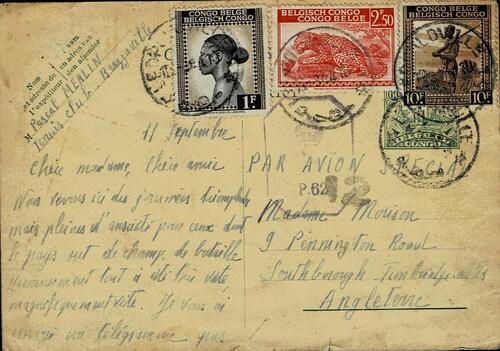 CONGO BELGE
BELGISCH CONGO
1F
BELGISCH CONGO
CONGO BELGE
2.50
CONGO BELGE
BELGISCH CONGO
10F
10F
CONGO
Nom
et adresse de
l'expéditeur
M Pascal MERLIN
Tennis club Brazzaville
11 Septembre
Chère madame, Chère amie
Nous vivons ici des journées triomphales
mais pleines d'anxiété pour ceux dont
le pays est de champ de bataille
heureusement tout a été très vite
magnifiquement vite. Je vous ai
envoyé un télégramme pas
PAR AVION
P.62
12
Madame Mouson
9 Pennington Road
Southborough Tunbridge Wells
Angleterre